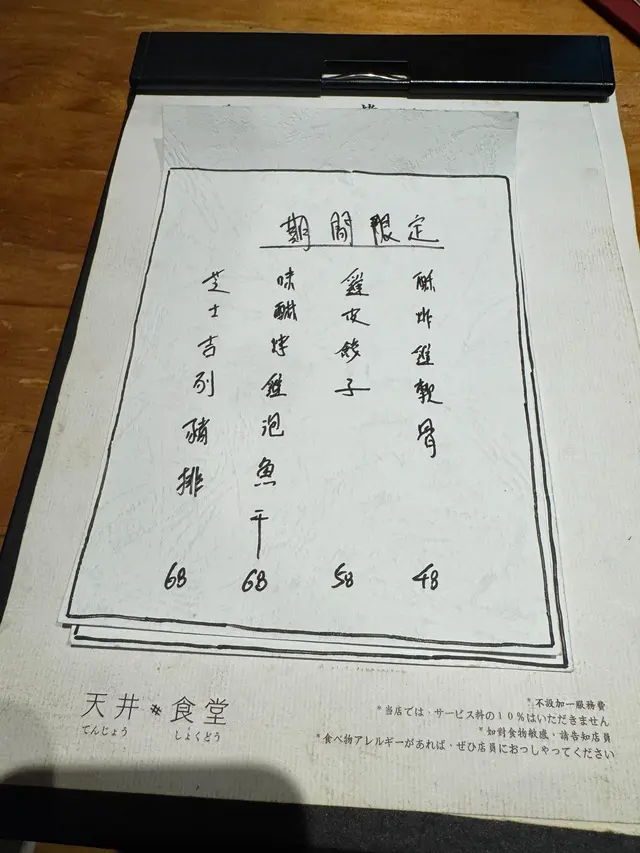 期間限定
酥炸雞軟骨
48
雞皮餃子
58
味醂烤雞泡魚干
68
芝士吉列豬排
68
天井食堂
てんじょう しょくどう
*不設加一服務費
*当店では、サービス料の10%はいただきません
*如對食物敏感，請告知店員
*食べ物アレルギーがあれば、ぜひ店員におっしゃってください